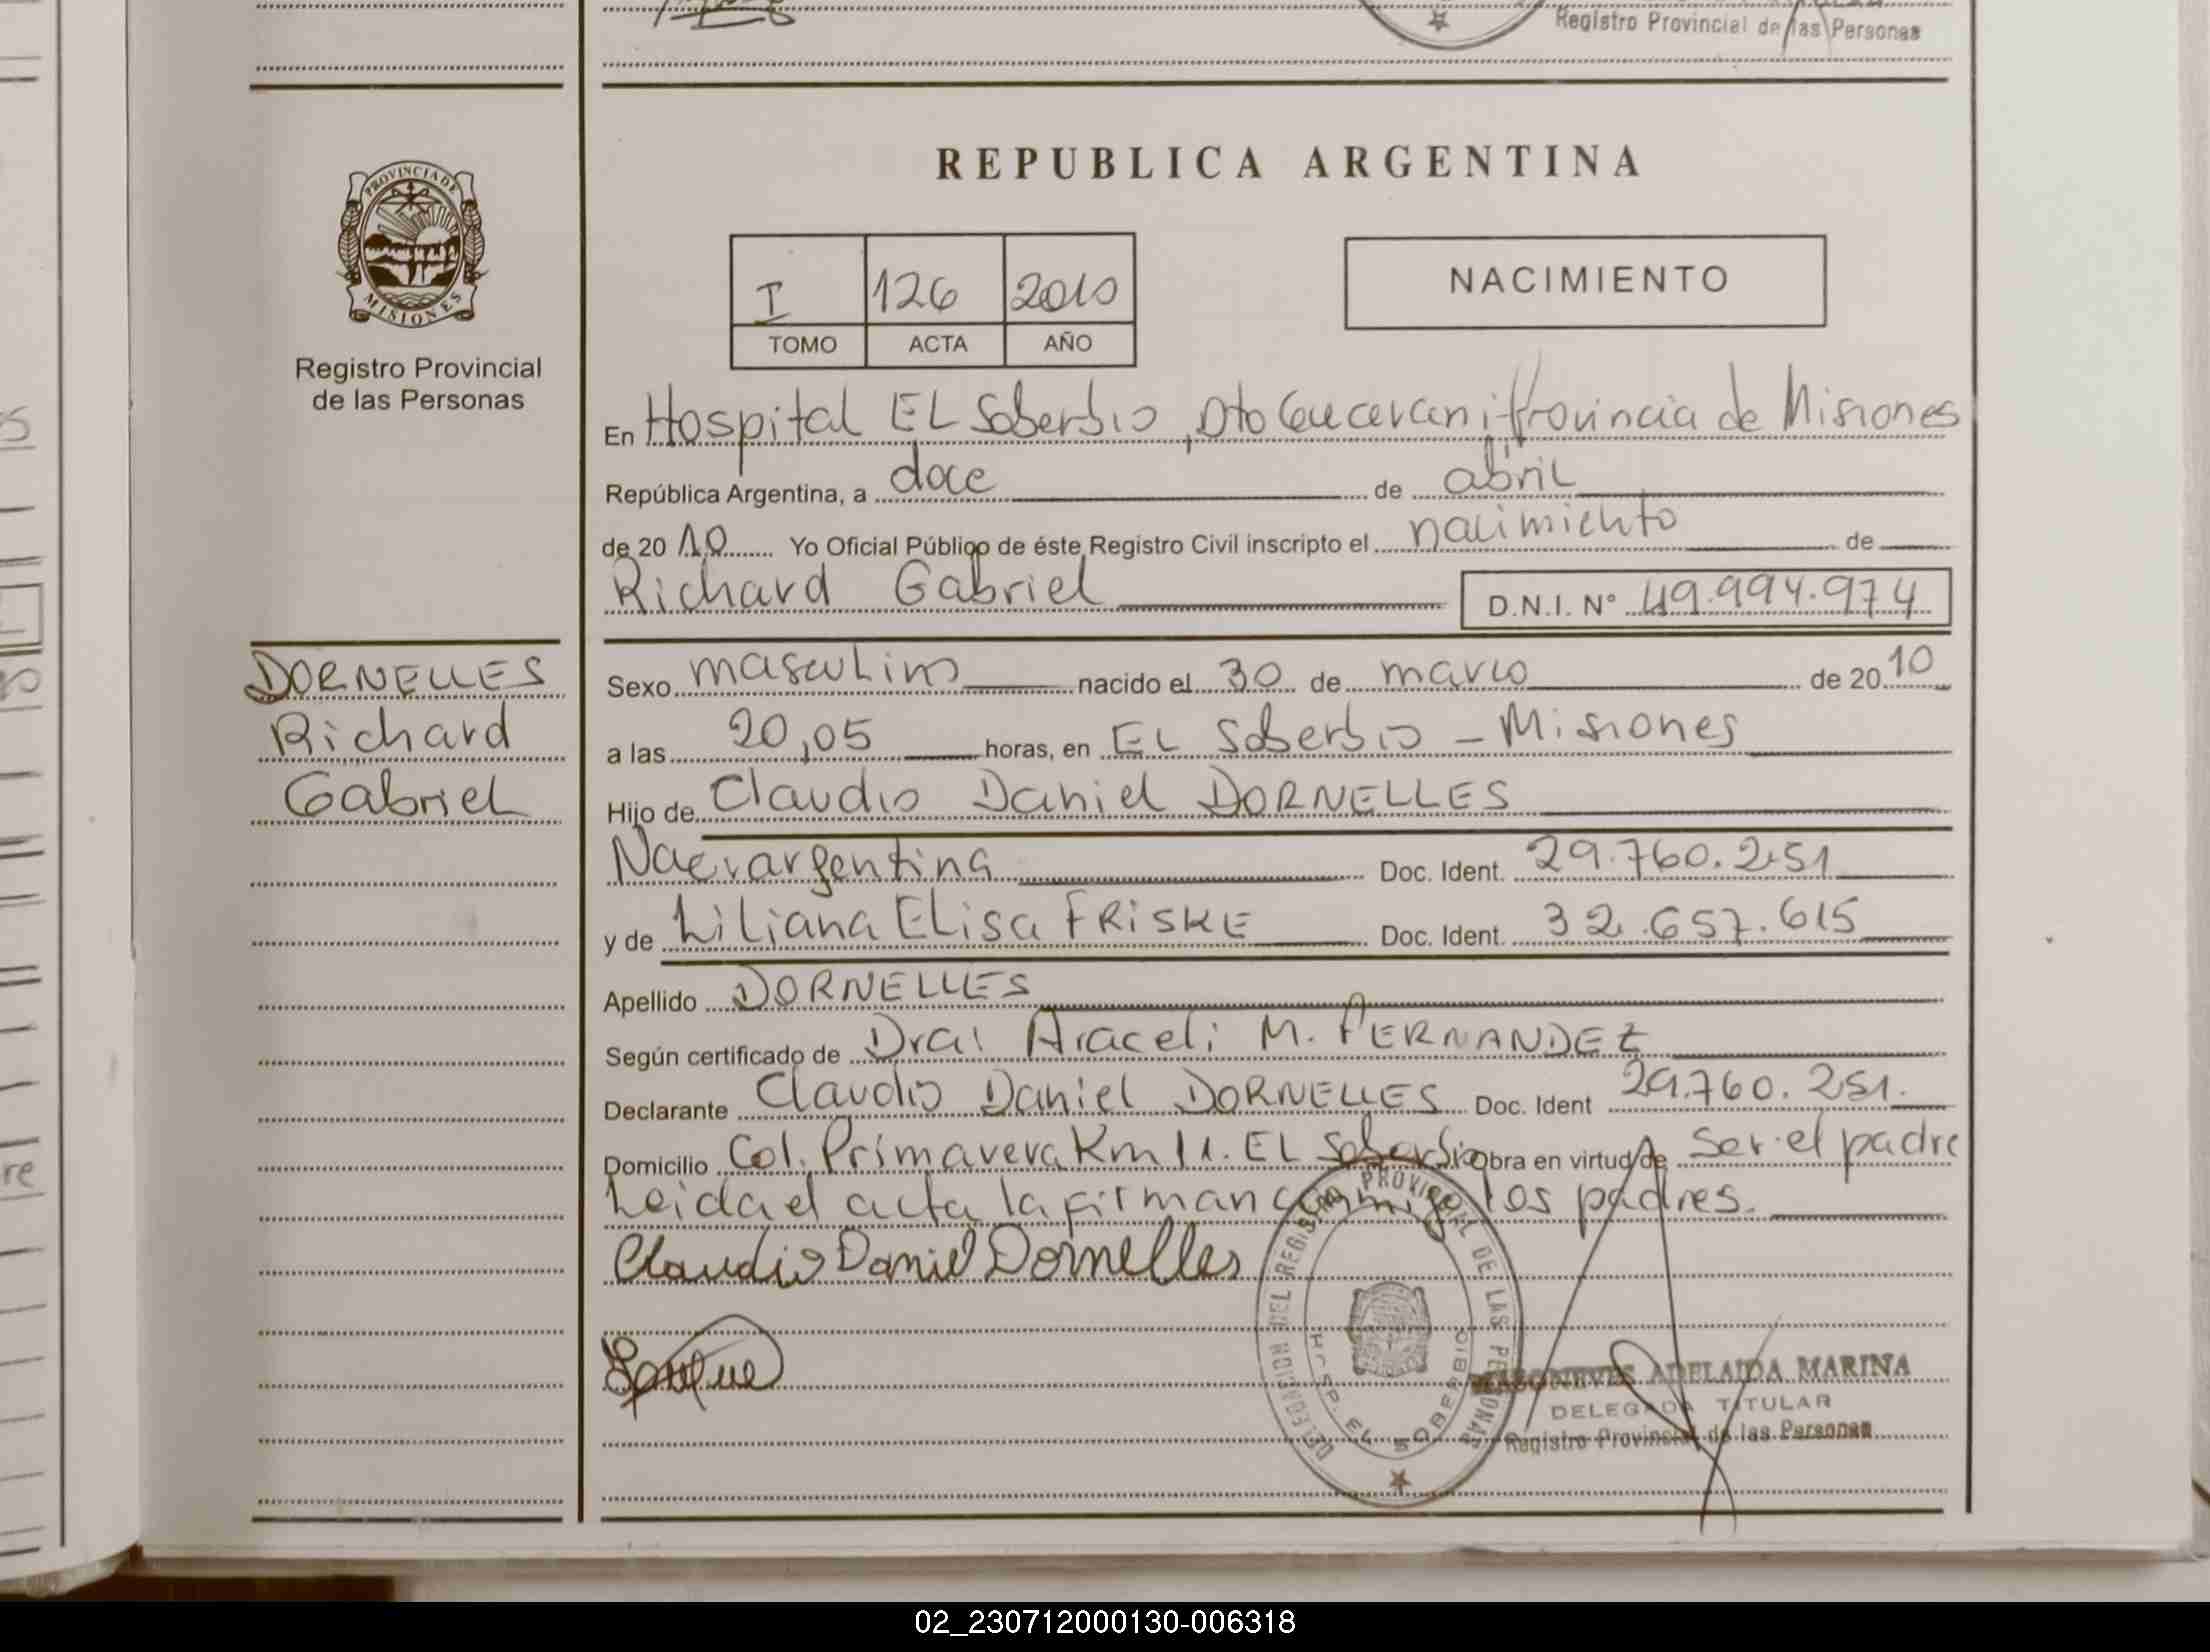 Registro Provincial de las Personas
REPUBLICA ARGENTINA
PROVINCIA DE
MISIONES
Registro Provincial
de las Personas
I 126 2010
TOMO ACTA AÑO
NACIMIENTO
En Hospital EL Soberbio, Dto Guarani Provincia de Misiones
República Argentina, a doce de abril
de 2010 Yo Oficial Público de éste Registro Civil inscripto el nacimiento de
Richard Gabriel D.N.I. Nº 49.994.974
DORNELLES
Richard
Gabriel
Sexo masculino nacido el 30 de marzo de 2010
a las 20,05 horas, en EL Soberbio - Misiones
Hijo de Claudio Daniel DORNELLES
Nac: argentina Doc. Ident. 29.760.251
y de Liliana ELisa FRISKE Doc. Ident. 32.657.615
Apellido DORNELLES
Según certificado de Dra: Araceli M. FERNANDEZ
Declarante Claudio Daniel DORNELLES Doc. Ident 29.760.251.
Domicilio Col. Primavera Km 11. EL Soberbio Obra en virtud de ser el padre
Leida el acta la firman conmigo los padres.
Claudio Daniel Dornelles
DELEGACION DEL REGISTRO PROVINCIAL DE LAS PERSONAS
HOSP. EL SOBERBIO
ADELAIDA MARINA
DELEGADA TITULAR
Registro Provincial de las Personas
02_230712000130-006318